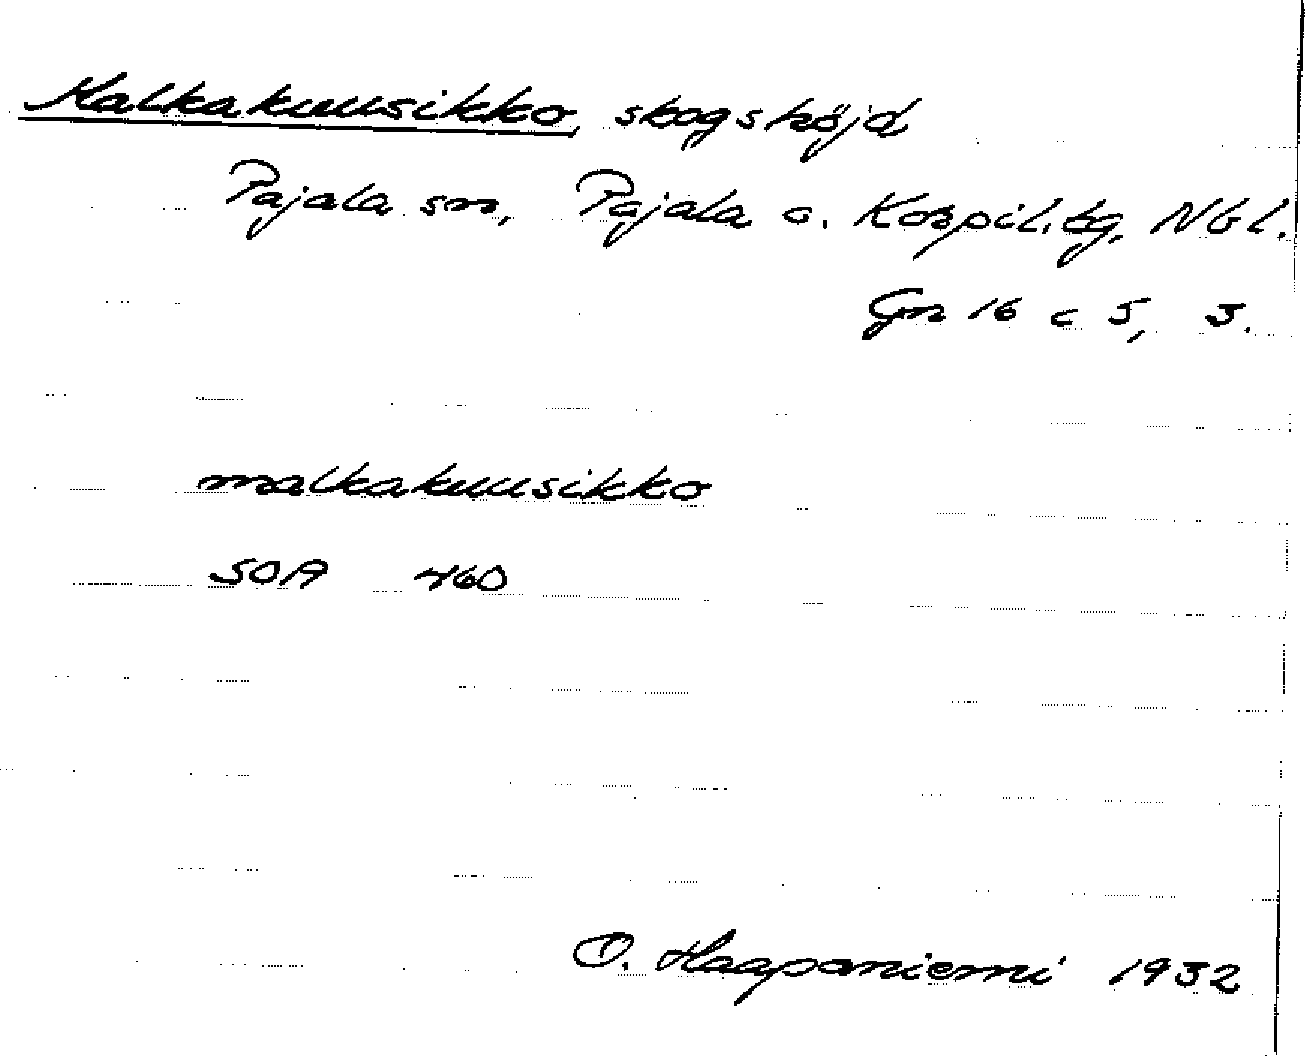 Malkakuusikko, skogshöjd
Pajala sn, Pajala o. Korpil. tg, Nbl.
Gn 16 c 5, 3.
malkakuusikko
SOA 460
O. Haapaniemi 1932